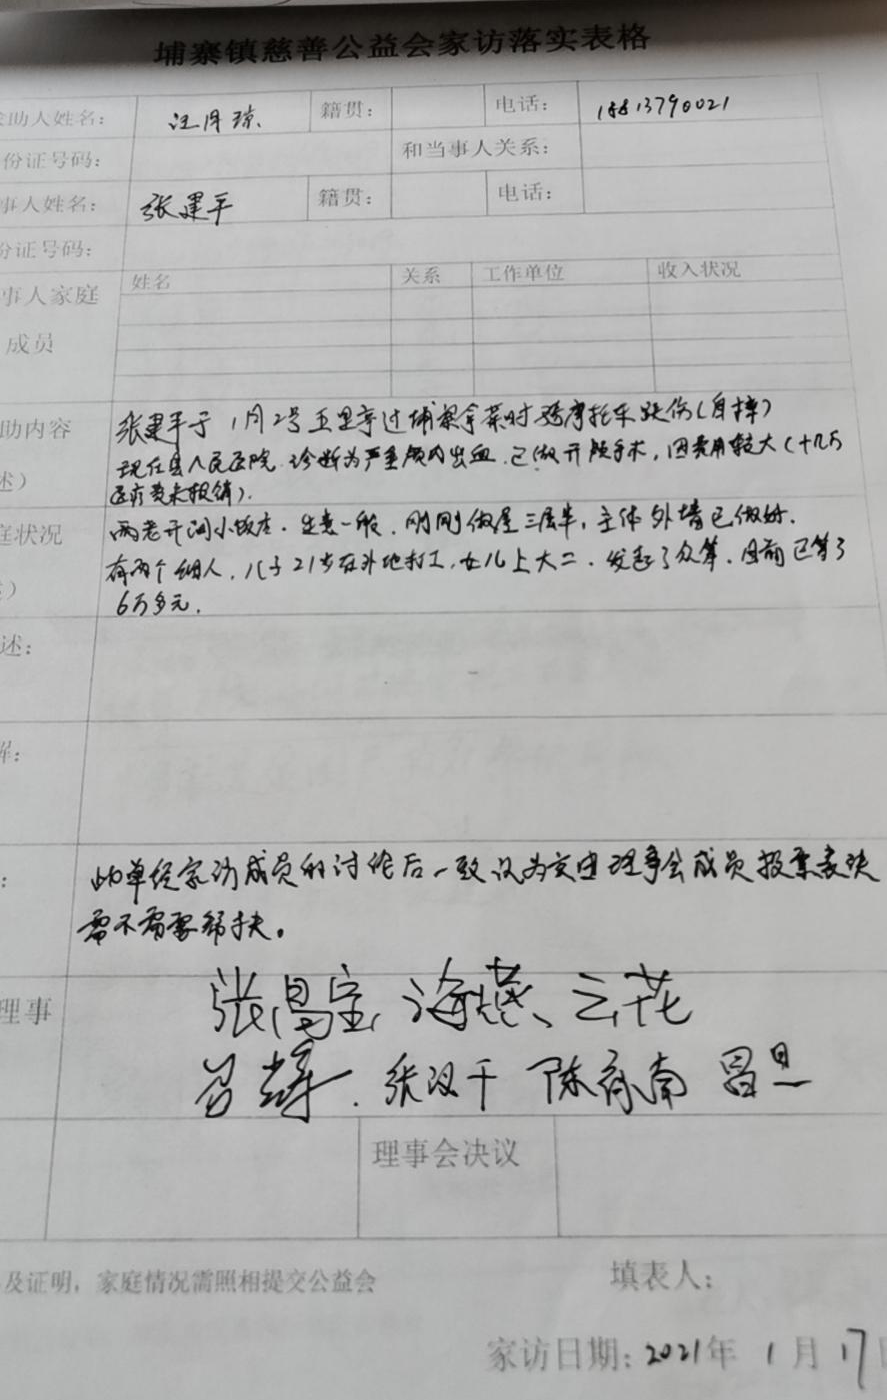 埔寨镇慈善公益会家访落实表格
助人姓名： 汪月琼 籍贯： 电话： 18813790021
份证号码： 和当事人关系：
事人姓名： 张建平 籍贯： 电话：
份证号码：
事人家庭 姓名 关系 工作单位 收入状况
成员
助内容 张建平于1月2号五里亭过埔寨拿菜时骑摩托车跌伤（自摔）
述） 现在县人民医院.诊断为严重颅内出血.已做开颅手术，因费用较大（十几万
医疗费未报销）.
庭状况 两老开间小饭店.生意一般.刚刚做屋三层半，主体外墙已做好.
） 有两个细人，儿子21岁在外地打工，女儿上大二.发起了众筹.目前已筹了
6万多元.
述：
解：
： 此单经家访成员的讨论后一致认为交由理事会成员投票表决
需不需要帮扶。
理事 张昌宝、海燕、云花
张汉千 陈 南 昌旦
理事会决议
及证明，家庭情况需照相提交公益会 填表人：
家访日期：2021年1月17日